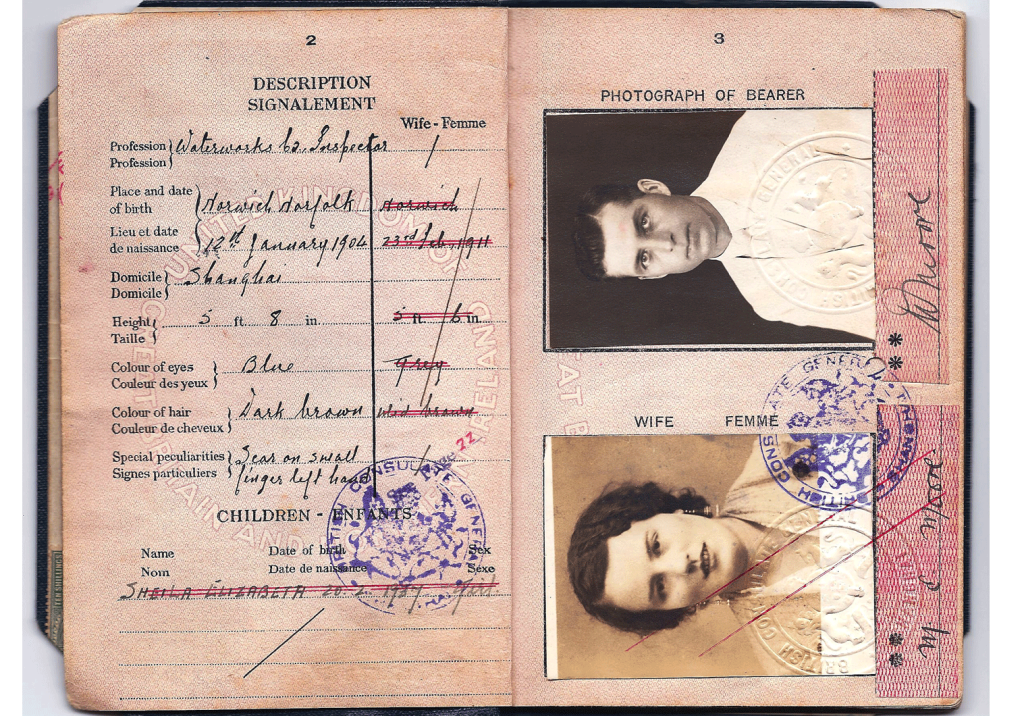 2
DESCRIPTION
SIGNALEMENT
Wife - Femme
Profession
Profession
Waterworks Co. Inspector
Place and date
of birth
Norwich Norfolk
Norwich
Lieu et date
de naissance
12th January 1904
23rd Feb, 1911
Domicile
Domicile
Shanghai
Height
Taille
5 ft. 8 in.
5 ft 6 in.
Colour of eyes
Couleur des yeux
Blue
Grey
Colour of hair
Couleur de cheveux
Dark brown
Mid brown
Special peculiarities
Signes particuliers
Scar on small
finger left hand
22
CHILDREN - ENFANTS
Name
Nom
Date of birth
Date de naissance
Sex
Sexe
SHEILA ELIZABETH 20.2.
UNITED KINGDOM OF
GREAT BRITAIN AND
IRELAND
CONSULATE GENERAL
3
PHOTOGRAPH OF BEARER
Moore
WIFE FEMME
Moore
BRITISH CONSULATE GENERAL